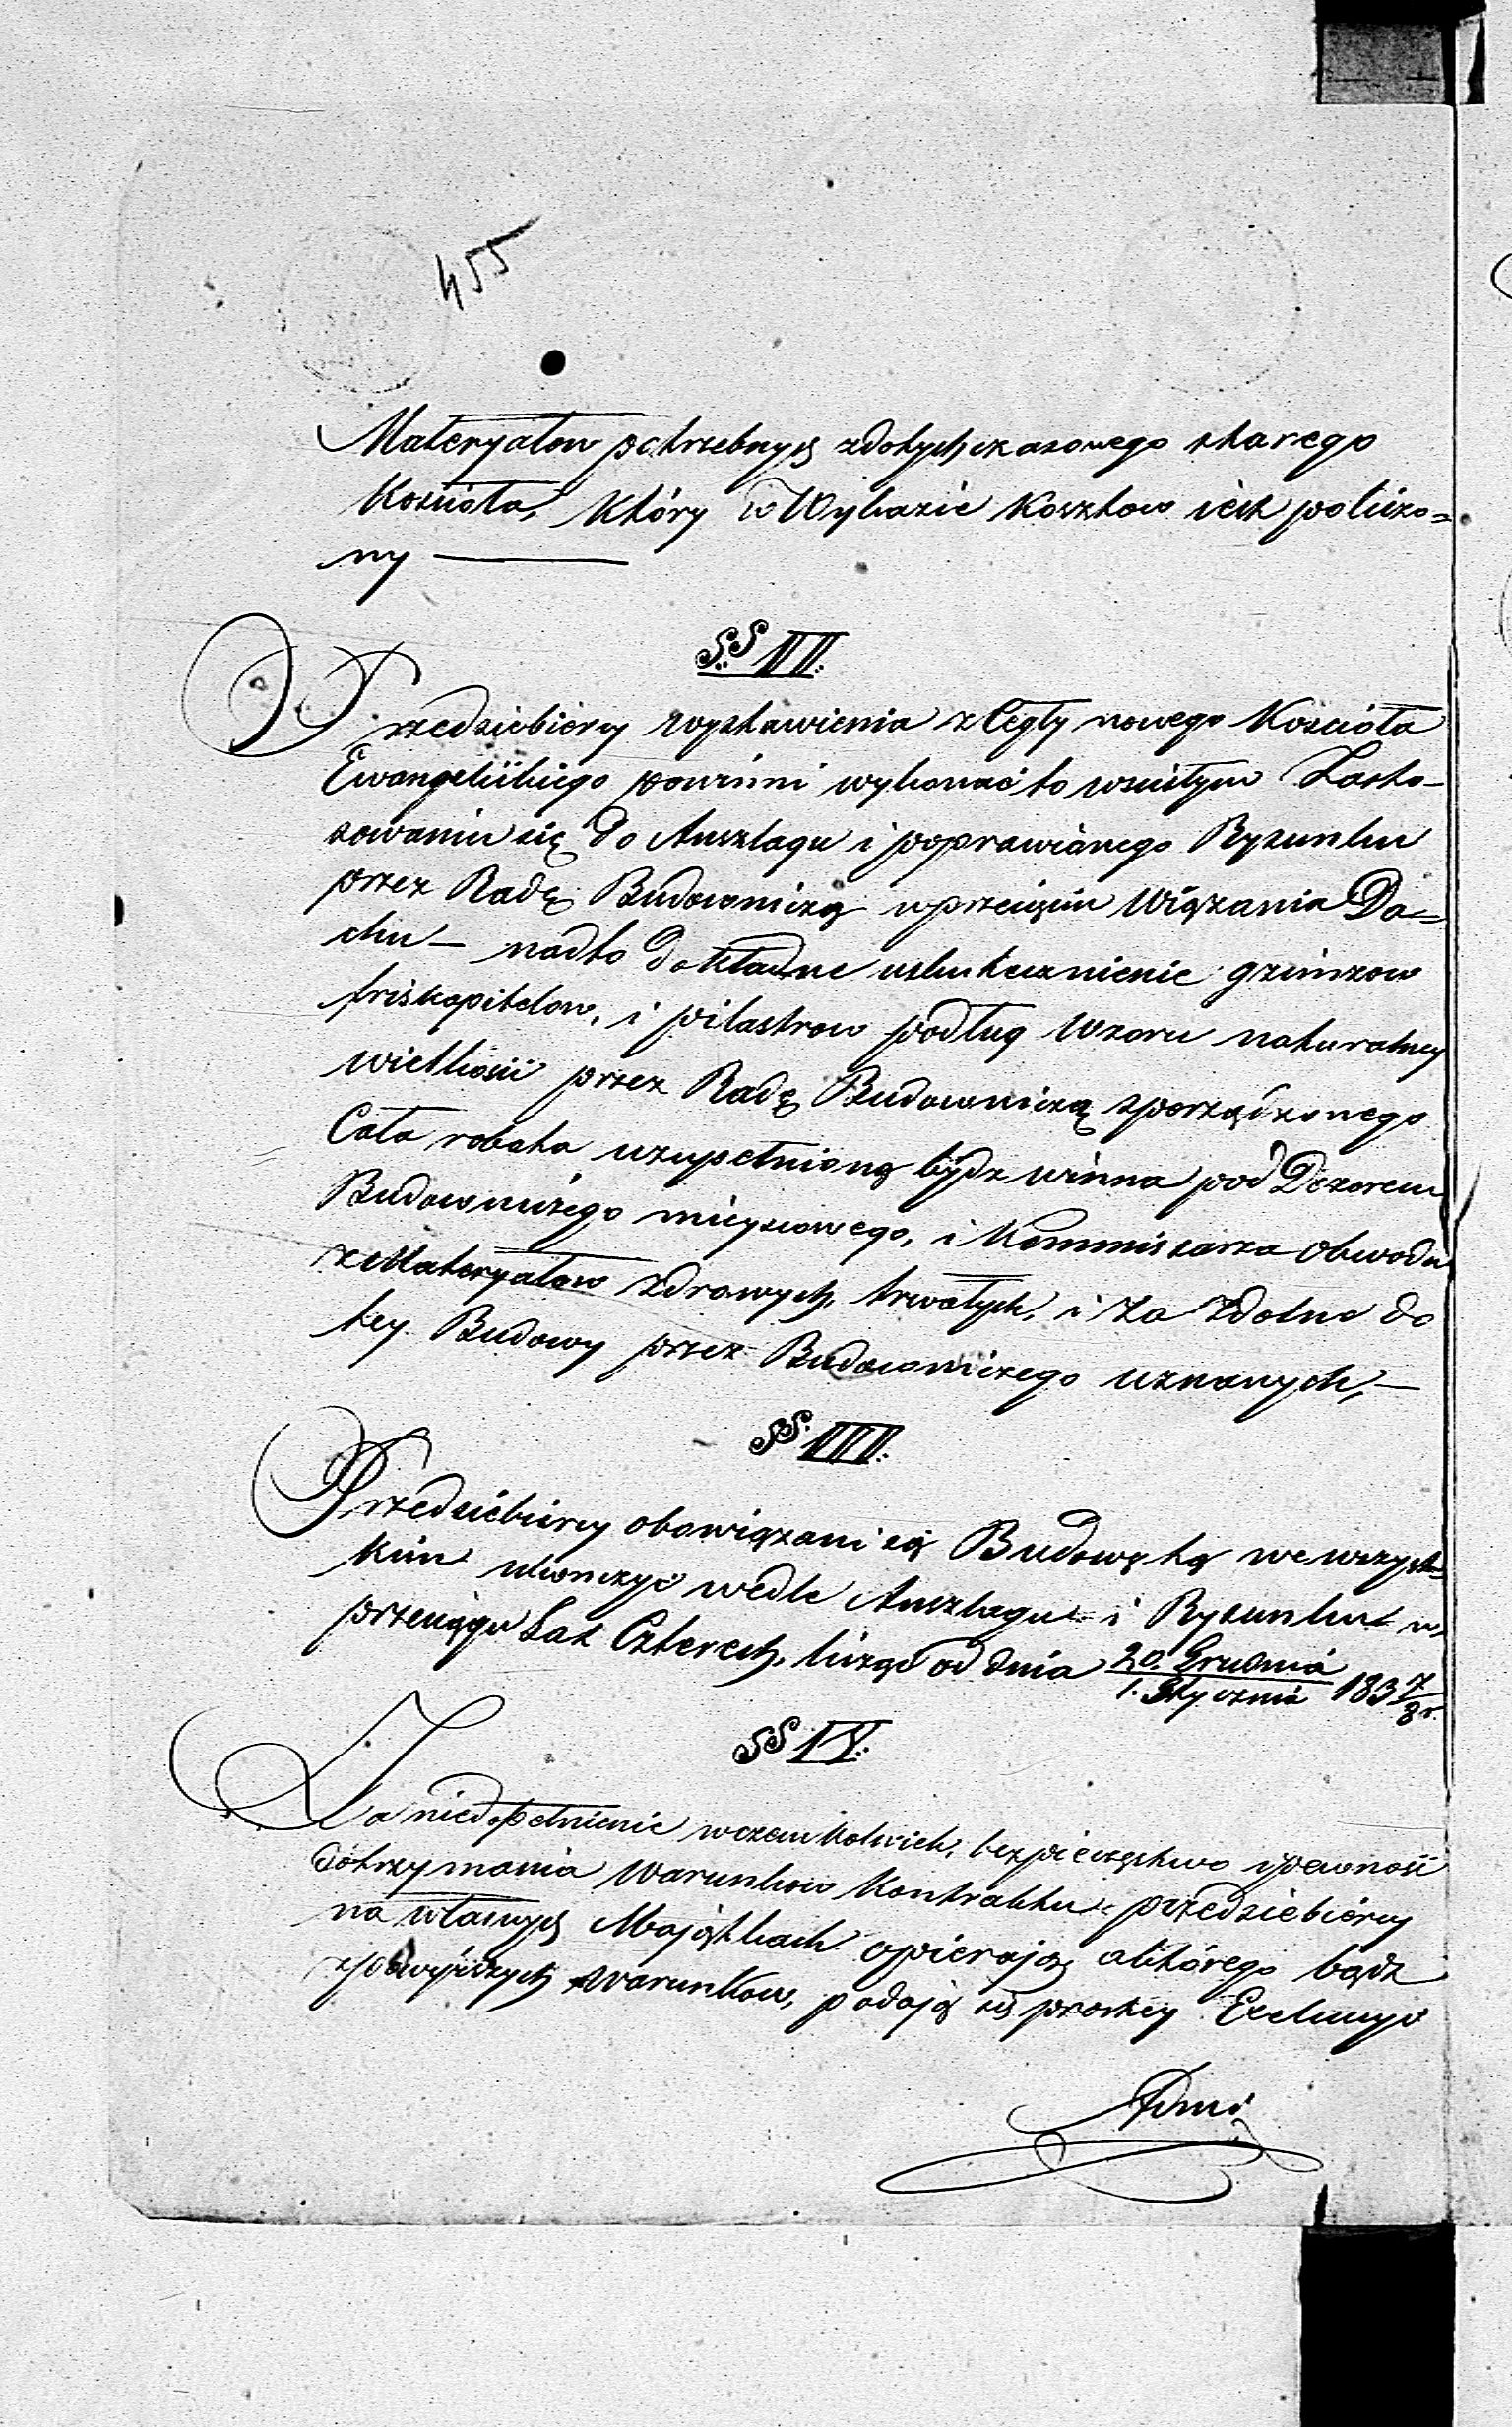 455
Materyałow potrzebnych zdotychczasowego starego
Kościoła, który w Wykazie Kosztow iest policzo=
ny ———
§§ II.
Przedsiebiercy wystawienia z Cegły nowego Kościoła
Ewangelickiego powinni wykonać to wścisłym Zasto-
sowaniu się do Anszlagu i poprawianego Rysunku
przez Radę Budowniczą wprzecięciu Wiązania Da=
chu — nadto dokładne uskutecznienie gzimzow
friskapitelow, i pilastrow podług Wzoru naturalney
wielkości przez Radę Budowniczą sporządzonego
Cała robota uzupełnioną bydz winna pod Dozorem
Budowniczego mieyscowego, i Kommissarza Obwodu
z Materyałow zdrowych, trwałych, i za zdolne do
tey Budowy przez Budowniczego uznanych, —
§§ III.
Przedsiebiercy obowiązani są Budowę tą we wszyst=
kim ukonczyć wedle Anszlagu i Rysunku w
przeciągu Lat Czterech, licząc od dnia 20. Grudnia / 1. Stycznia 183 7/8 r.
§§ IV.
Za niedopełnienie wczemkolwiek, bezpieczęstwo ipewność
dotrzymania Warunkow Kontraktu przedsiebiercy
na własnych Majątkach opierają aktórego bądz
zpowyższych warunkow, podają się prostey Exekucyi
Adm: